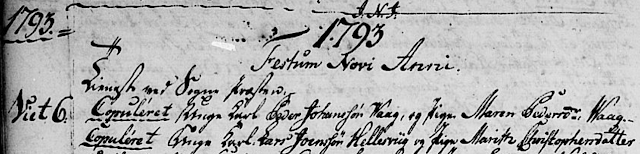 J. N. J.
1793. 1793
Festum Novi Anni.
Tienest ved Sogne Præsten.
Viet 6. Copuleret Unge Karl Peder Johansön Waag, og Pige Maren Pedersdr. Waag
Copuléret Unge Karl Lars Joensön Hellevüg og Pige Maritz Christophersdatter